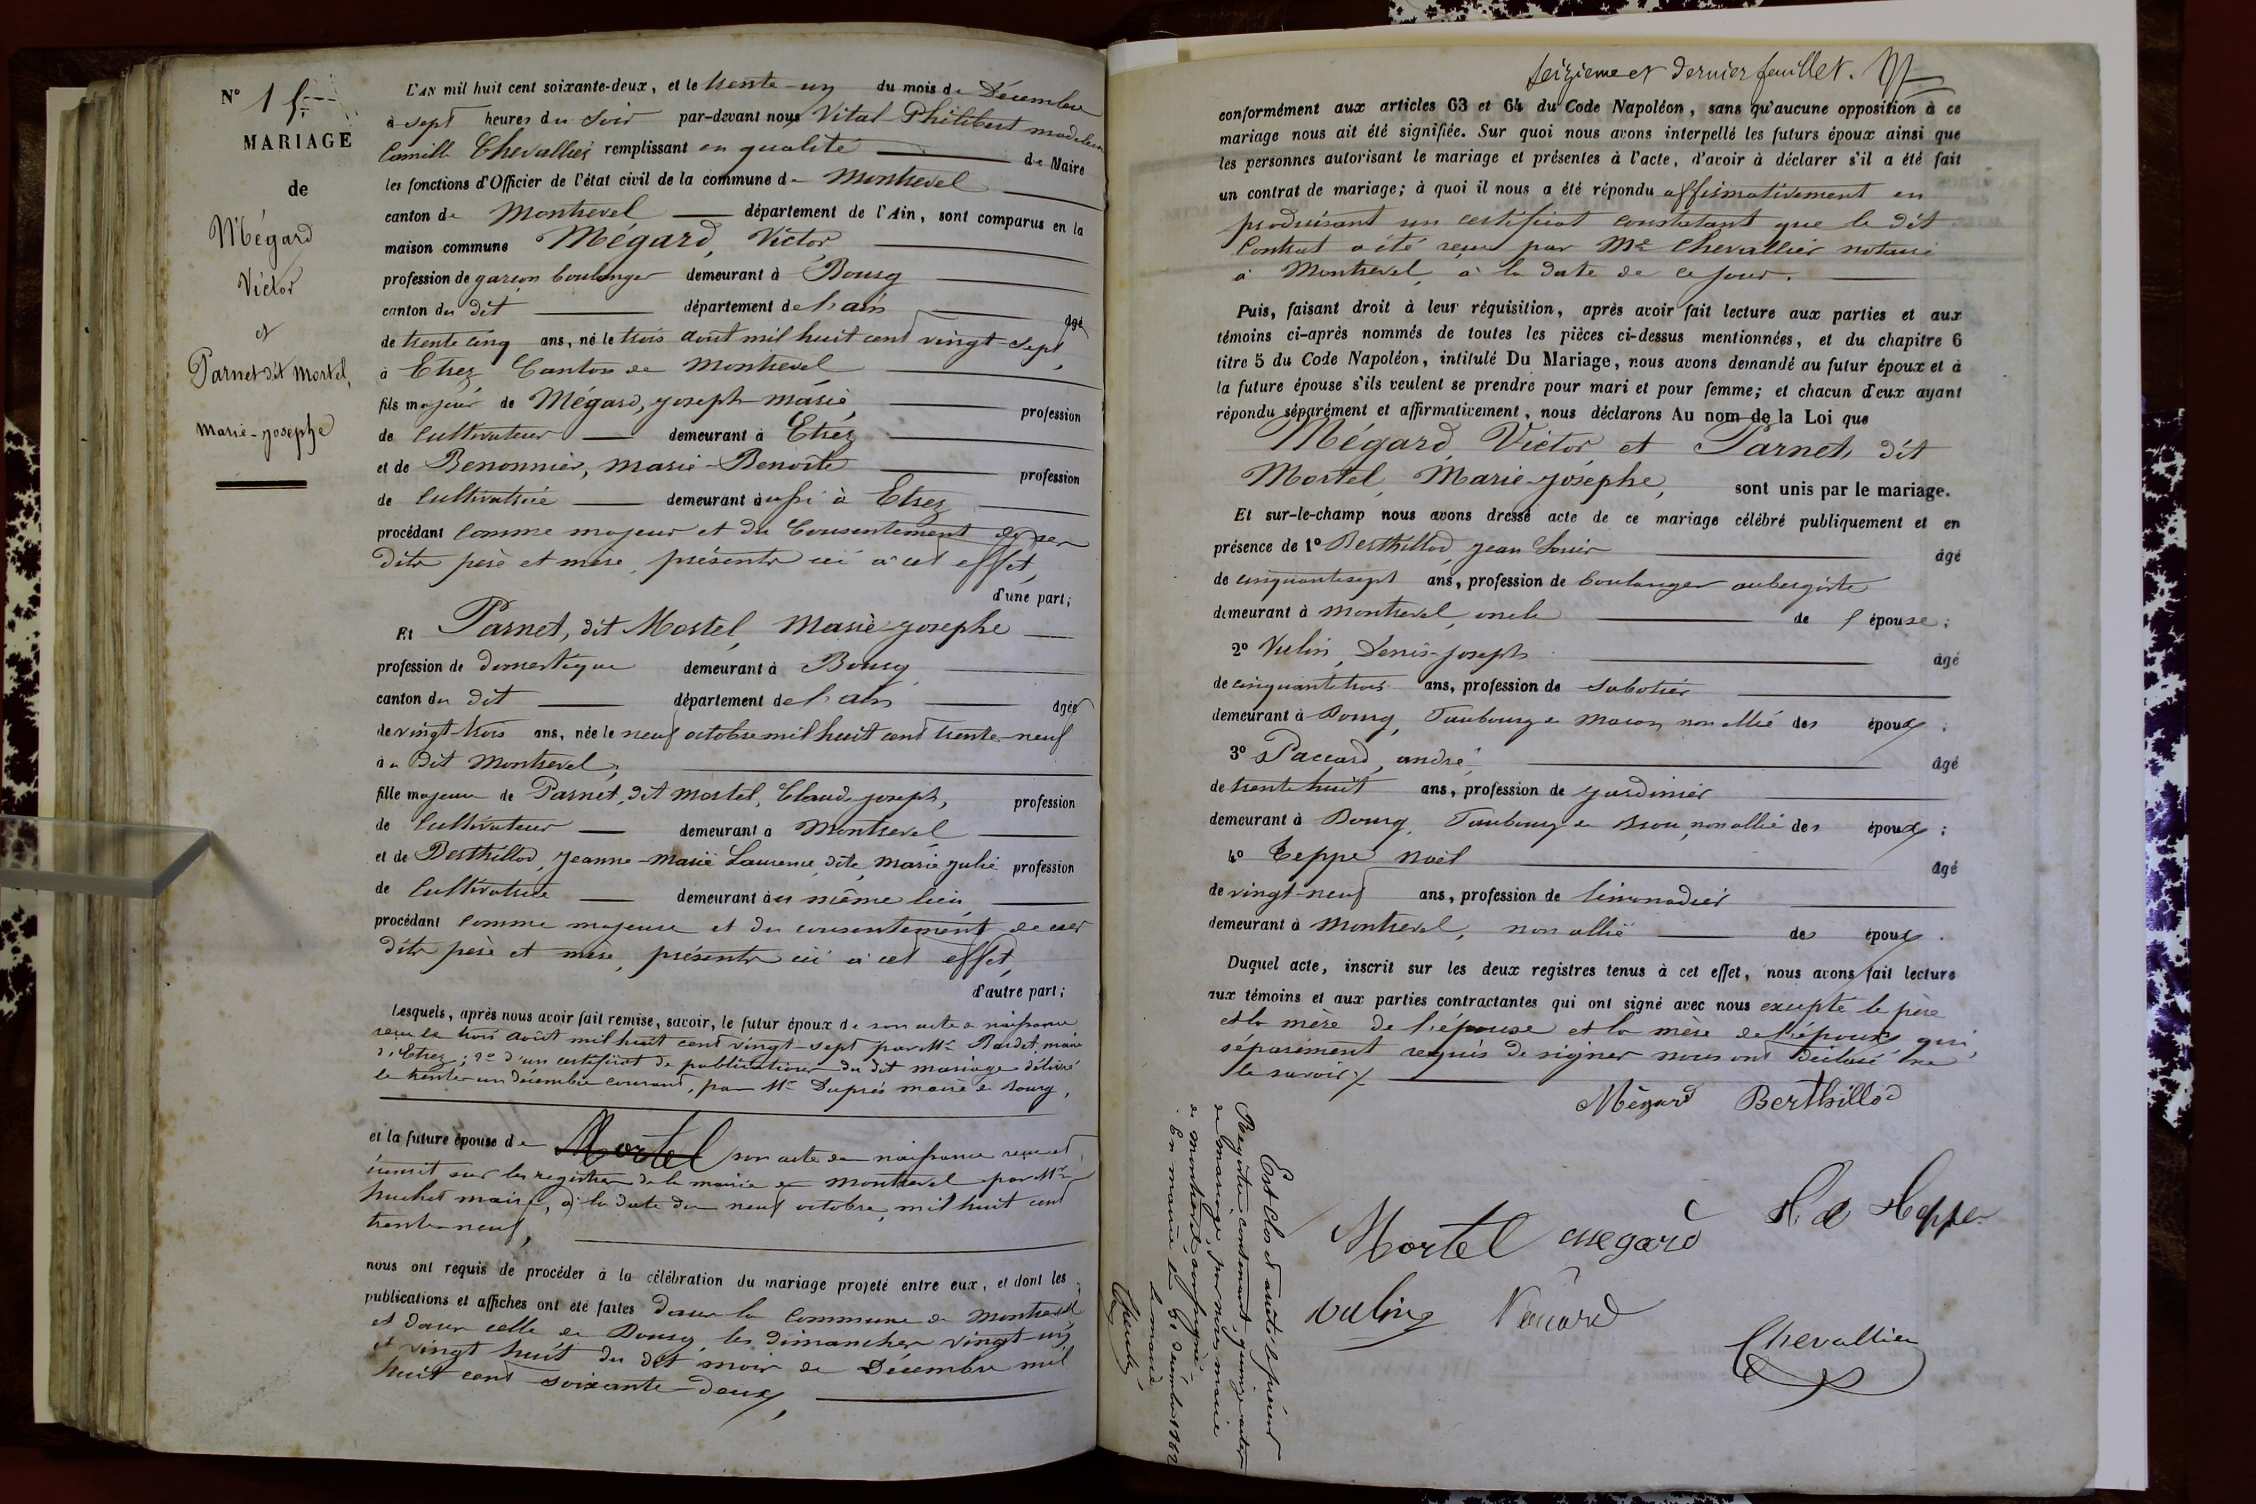 N° 15
MARIAGE
de
Mégard
Victor
et
Parnet dit Mortel,
Marie-Josephe
L'AN mil huit cent soixante-deux, et le trente-un du mois de Décembre
à sept heures du soir par-devant nous Vital Philibert Madelein
Camille Chevallier remplissant en qualité de Maire
les fonctions d'Officier de l'état civil de la commune de Montrevel
canton de Montrevel département de l'Ain, sont comparus en la
maison commune Mégard, Victor
profession de garçon boulanger demeurant à Bourg
canton du dit département de l'ain âgé
de trente cinq ans, né le trois août mil huit cent vingt-sept,
à Etrez Canton de Montrevel
fils majeur de Mégard, Joseph-Marie, profession
de Cultivateur demeurant à Etrez
et de Benonnier, Marie-Benoite profession
de Cultivatrice demeurant aussi à Etrez
procédant comme majeur et du Consentement de ses
dits père et mère, présents ici à cet effet,
d'une part;
Et Parnet, dit Mortel, Marie-Josephe
profession de domestique demeurant à Bourg
canton du dit département de l'ain âgée
de vingt-trois ans, née le neuf octobre mil huit cent trente-neuf
au dit Montrevel,
fille majeure de Parnet, dit Mortel, Claude Joseph, profession
de Cultivateur demeurant à Montrevel
et de Berthillod, Jeanne-Marie Laurence, dite, Marie Julie profession
de Cultivatrice demeurant au même lieu,
procédant comme majeure et du consentement de ses
dits père et mère, présents ici à cet effet,
d'autre part;
Lesquels, après nous avoir fait remise, savoir, le futur époux de son acte de naissance
reçu le trois août mil huit cent vingt-sept par Mr Bardet, maire
d'Etrez; 2° d'un certificat de publications du dit mariage délivré
le trente-un décembre courant, par Mr Duprés maire de Bourg,
et la future épouse de Mortel son acte de naissance reçu et
inscrit sur les registres de la mairie de Montrevel par Mr
huchet maire, à la date du neuf octobre, mil huit cent
trente-neuf,
nous ont requis de procéder à la célébration du mariage projeté entre eux, et dont les
publications et affiches ont été faites dans la commune de Montrevel
et dans celle de Bourg, les dimanches vingt-un,
et vingt huit du dit mois de Décembre mil
huit cent soixante-deux,
seizieme et dernier feuillet.
conformément aux articles 63 et 64 du Code Napoléon, sans qu'aucune opposition à ce
mariage nous ait été signifiée. Sur quoi nous avons interpellé les futurs époux ainsi que
les personnes autorisant le mariage et présentes à l'acte, d'avoir à déclarer s'il a été fait
un contrat de mariage; à quoi il nous a été répondu affirmativement en
produisant un certificat constatant que le dit
Contrat a été reçu par Me Chevallier notaire
à Montrevel, à la date de ce jour.
Puis, faisant droit à leur réquisition, après avoir fait lecture aux parties et aux
témoins ci-après nommés de toutes les pièces ci-dessus mentionnées, et du chapitre 6
titre 5 du Code Napoléon, intitulé Du Mariage, nous avons demandé au futur époux et à
la future épouse s'ils veulent se prendre pour mari et pour femme; et chacun d'eux ayant
répondu séparément et affirmativement, nous déclarons Au nom de la Loi que
Mégard, Victor et Parnet, dit
Mortel, Marie-Josephe, sont unis par le mariage.
Et sur-le-champ nous avons dressé acte de ce mariage célébré publiquement et en
présence de 1° Berthillod, Jean Louis âgé
de cinquante sept ans, profession de boulanger aubergiste
demeurant à Montrevel, oncle de l'épouse;
2° Vulin, Denis-Joseph âgé
de cinquante trois ans, profession de sabotier
demeurant à Bourg, Faubourg de Macon, non allié des époux;
3° Paccard, andré, âgé
de trente huit ans, profession de jardinier
demeurant à Bourg, Faubourg de Brou, non allié des époux;
4° Teppe Noël âgé
de vingt-neuf ans, profession de limonadier
demeurant à Montrevel, non allié des époux.
Duquel acte, inscrit sur les deux registres tenus à cet effet, nous avons fait lecture
aux témoins et aux parties contractantes qui ont signé avec nous excepté le père
et la mère de l'épouse et la mère de l'époux qui,
séparément requis de signer nous ont déclaré ne
le savoir.
Mégard Berthillod
Mortel Megard Teppe
vulin Paccard
Chevallier
Est Clos et arrêté le présent
Registre contenant quinze actes
de mariage, par nous maire
de Montrevel soussigné,
En mairie le 31 décembre 1862
le maire,
Chevallier